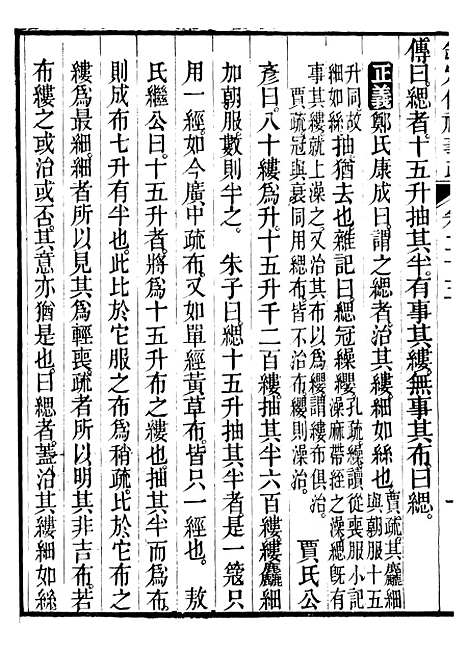 傳曰緦者十五升抽其半有事其縷無事其布曰緦
正義鄭氏康成曰謂之緦者治其縷細如絲也賈疏其麤細與朝服十五
升同故細如絲抽猶去也雜記曰緦冠繰纓孔疏繰讀從喪服小記澡麻帶絰之澡緦旣有
事其縷就上澡之又治其布以爲纓謂縷布俱治賈疏冠與衰同用緦布皆不治布纓則澡治賈氏公
彥曰八十縷爲升十五升千二百縷抽其半六百縷麤細
加朝服數則半之朱子曰緦十五升抽其半者是一簆只
用一經如今廣中疏布又如單經黃草布皆只一經也敖
氏繼公曰十五升者將爲十五升布之縷也抽其半而爲布
則成布七升有半也此比於它服之布爲稍疏比於它服之
縷爲最細細者所以見其爲輕喪疏者所以明其非吉布若
布縷之或治或否其意亦猶是也曰緦者蓋治其縷細如絲